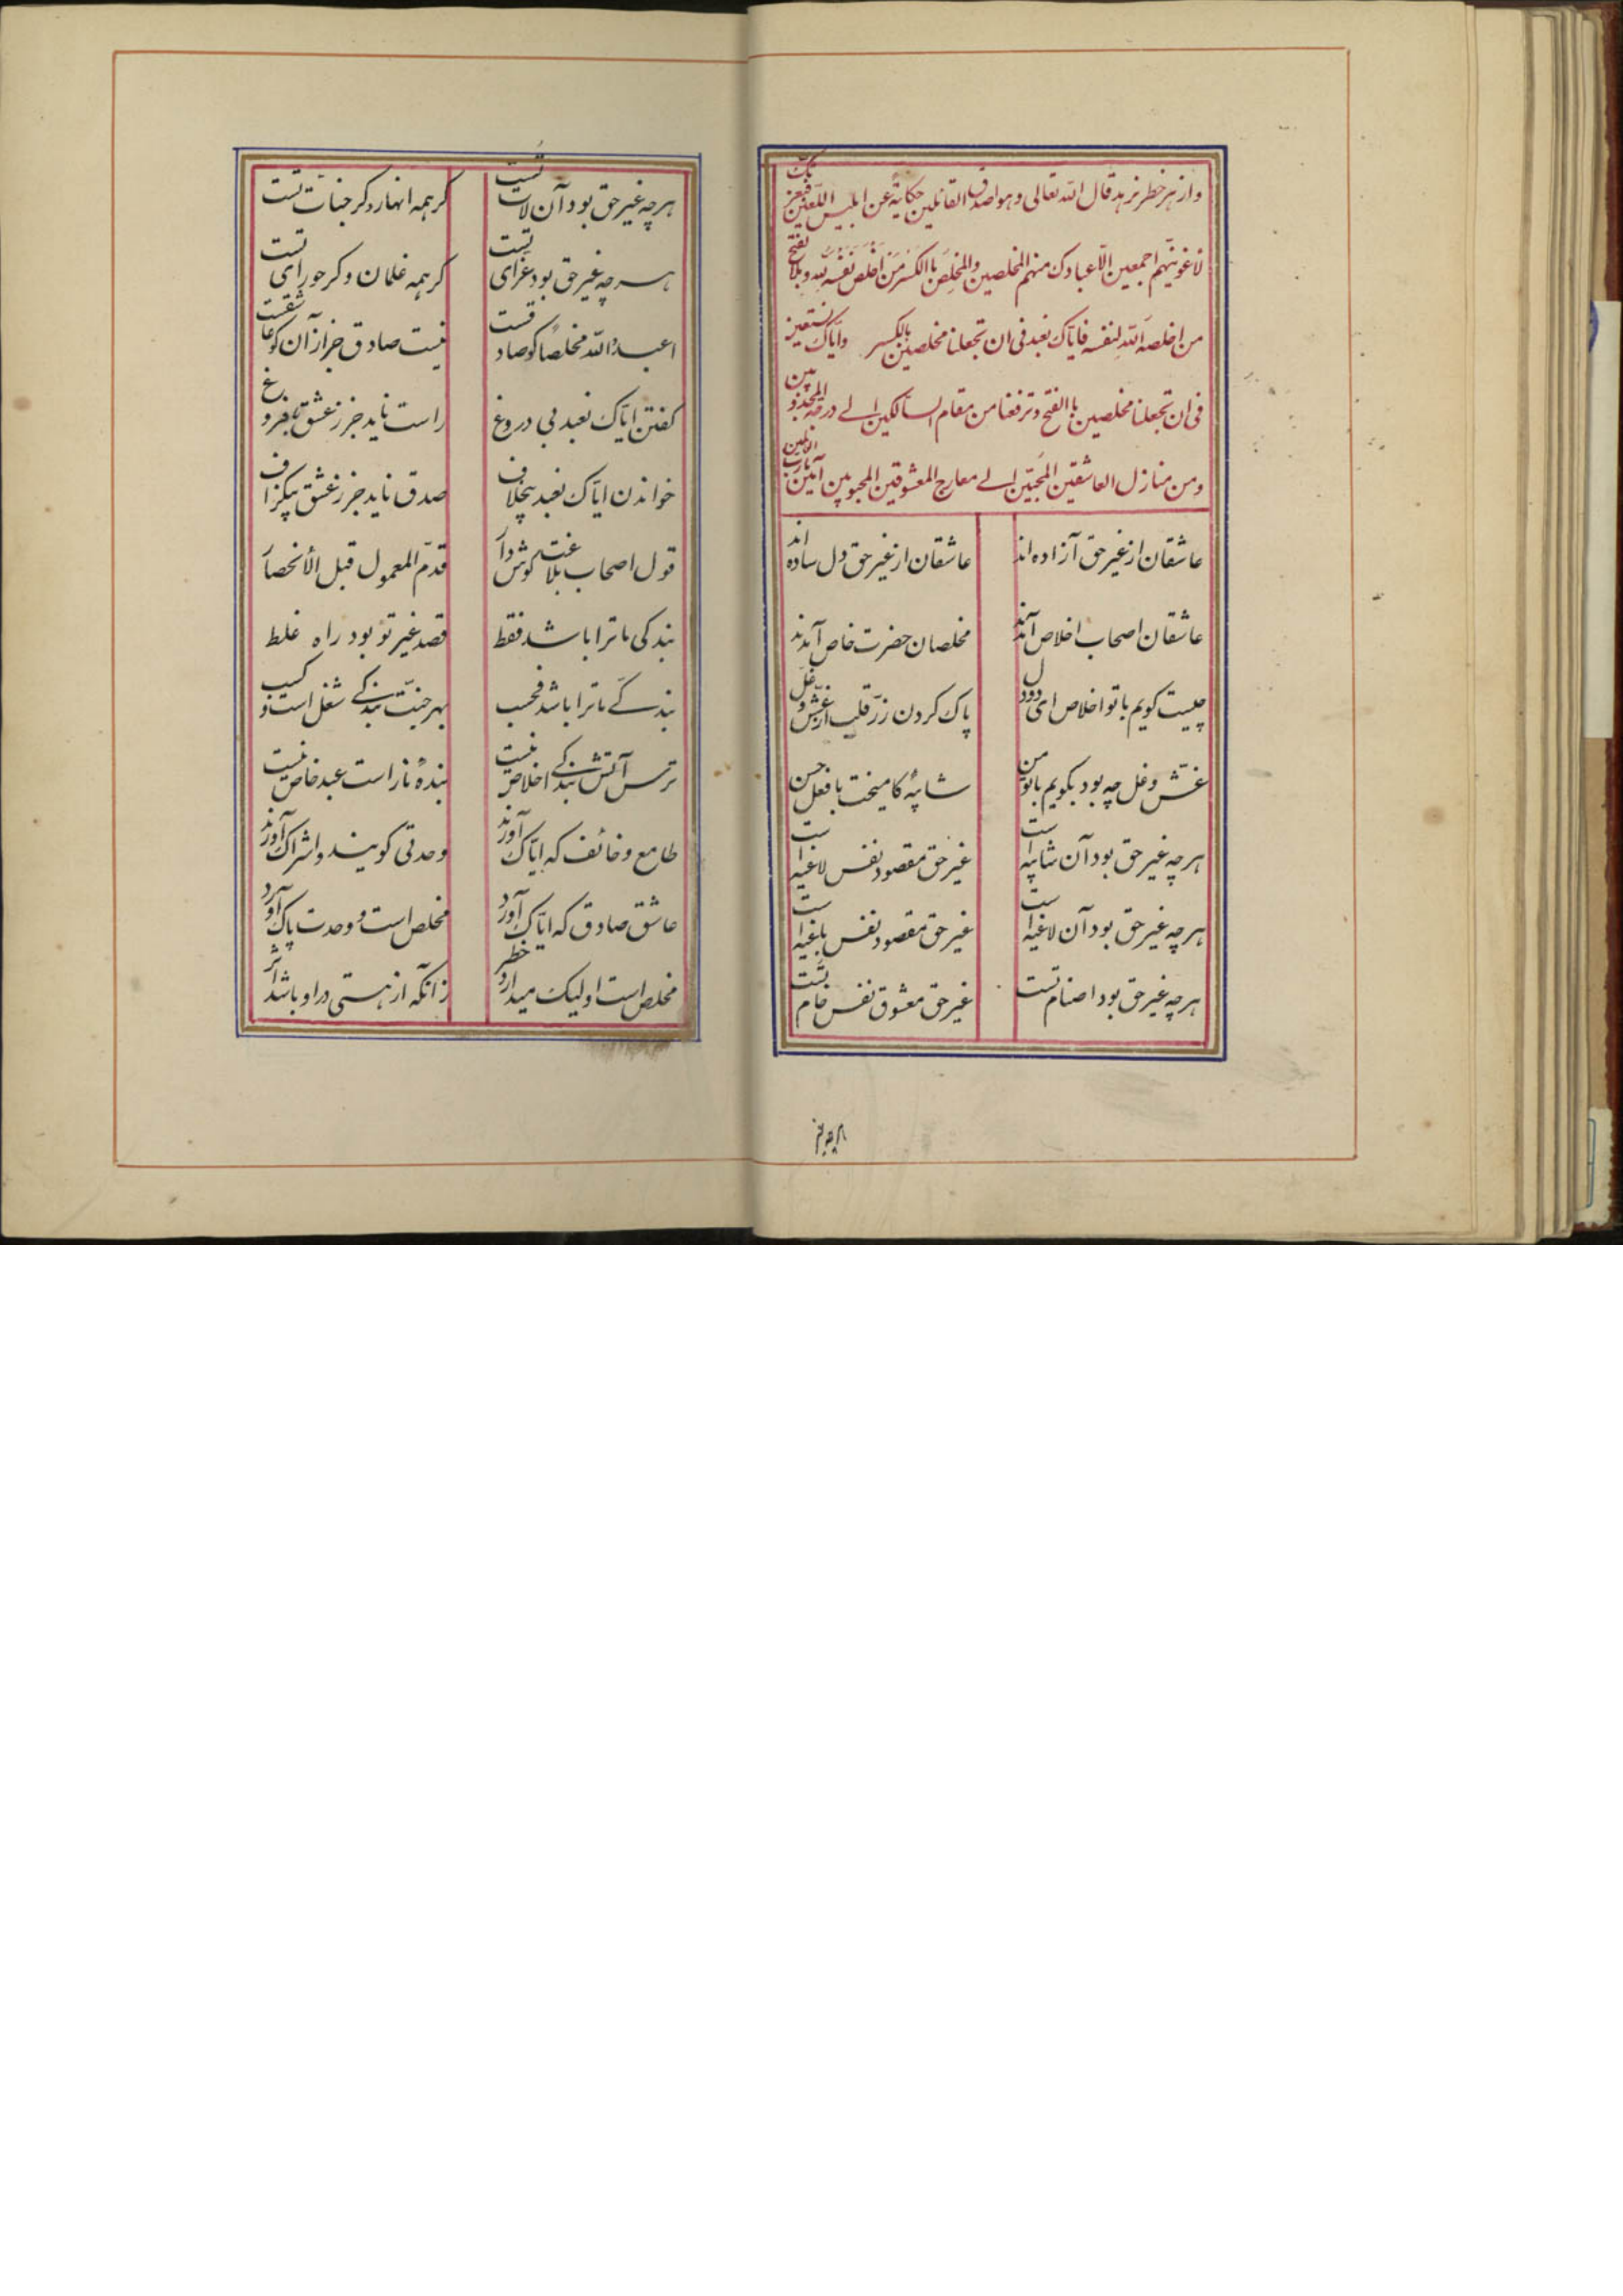 واز هر خطر نرهد قال الله تعالی وهو اصدق القائلین حکایة عن ابلیس اللعین فبعزتک
لاغوینهم اجمعین الا عبادک منهم المخلصین والمخلص باالکسر من اخلص نفسه لله وبالفتح
من اخلصه الله لنفسه فایاک نعبد فی ان تجعلنا مخلصین بالکسر وایاک نستعین
فی ان تجعلنا مخلصین باالفتح وترفعنا من مقام السالکین الی درجة المجذوبین
ومن منازل العاشقین المحبین الی معارج المعشوقین المحبوبین آمین یارب العالمین
عاشقان از غیر حق آزاده‌اند عاشقان از غیر حق دل ساده‌اند
عاشقان اصحاب اخلاص آمدند مخلصان حضرت خاص آمدند
چیست کویم با تو اخلاص ای دودل پاک کردن زر قلب از غش وغل
غش وغل چه بود بکویم با تو من شایبهٔ کامیخت با فعل حسن
هر چه غیر حق بود آن شایبه است غیر حق مقصود نفس لاغیه است
هر چه غیر حق بود آن لاغیه است غیر حق مقصود نفس باغیه است
هر چه غیر حق بود اصنام تست غیر حق معشوق نفس خام تست
هر چه غیر
هر چه غیر حق بود آن لات تست کر همه انهار وکر جنات تست
هر چه غیر حق بود عزای تست کر همه غلمان وکر حورای تست
اعبد الله مخلصا کو صادقست نیست صادق جز از آن کو عاشقست
کفتن ایاک نعبد بی دروغ راست ناید جز ز عشق با فروغ
خواندن ایاک نعبد بیخلاف صدق ناید جز ز عشق بیکزاف
قول اصحاب بلاغت کوش دار قدم المعمول قبل الانحصار
بندکی ما ترا باشد فقط قصد غیر تو بود راه غلط
بندکی ما ترا باشد فحسب بهر جنت بندکی شغل است وکسب
ترس آتش بندکی اخلاص نیست بندهٔ نار است عبد خاص نیست
طامع وخائف که ایاک آورند وحدتی کویند واشراک آورند
عاشق صادق که ایاک آورد مخلص است و وحدت پاک آورد
مخلص است او لیک میدارد خطر زانکه از هستی در او باشد اثر